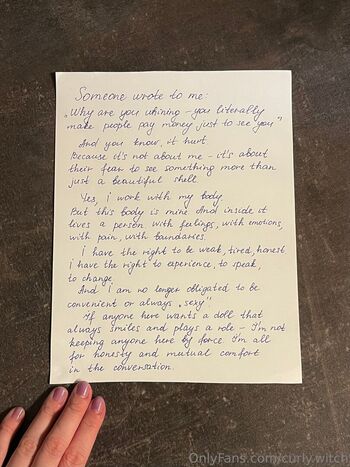 Someone wrote to me:
„Why are you whining – you literally
make people pay money just to see you"
And you know, it hurt
Because it's not about me – it's about
their fear to see something more than
just a beautiful shell.
Yes, i work with my body.
But this body is mine. And inside it
lives a person with feelings, with emotions,
with pain, with boundaries.
I have the right to be weak, tired, honest
i have the right to experience, to speak,
to change.
And i am no longer obligated to be
convenient or always „sexy"
If anyone here wants a doll that
always smiles and plays a role – I'm not
keeping anyone here by force. I'm all
for honesty and mutual comfort
in the conversation.
OnlyFans.com/curly.witch